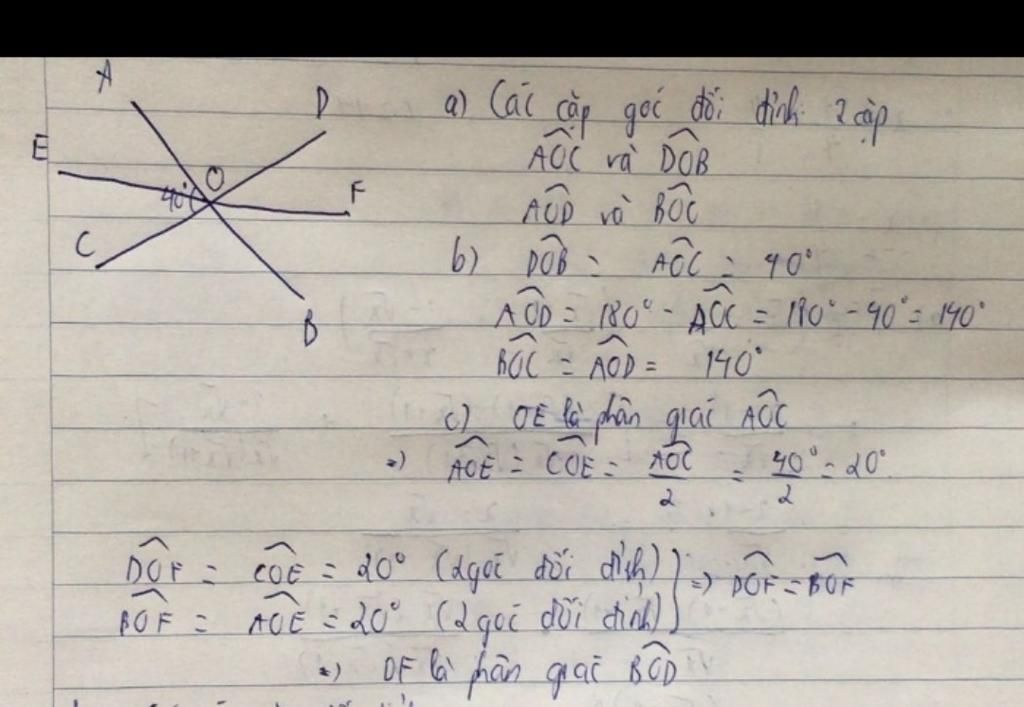 A
D
E
O
40°
F
C
B
a) Các cặp góc đối đỉnh: 2 cặp
AOC và DOB
AOD và BOC
b) DOB = AOC = 40°
AOD = 180° - AOC = 180° - 40° = 140°
BOC = AOD = 140°
c) OE là phân giác AOC
=) AOE = COE = AOC/2 = 40°/2 = 20°
DOF = COE = 20° (2 góc đối đỉnh)
BOF = AOE = 20° (2 góc đối đỉnh)
=) DOF = BOF
=) OF là phân giác BOD